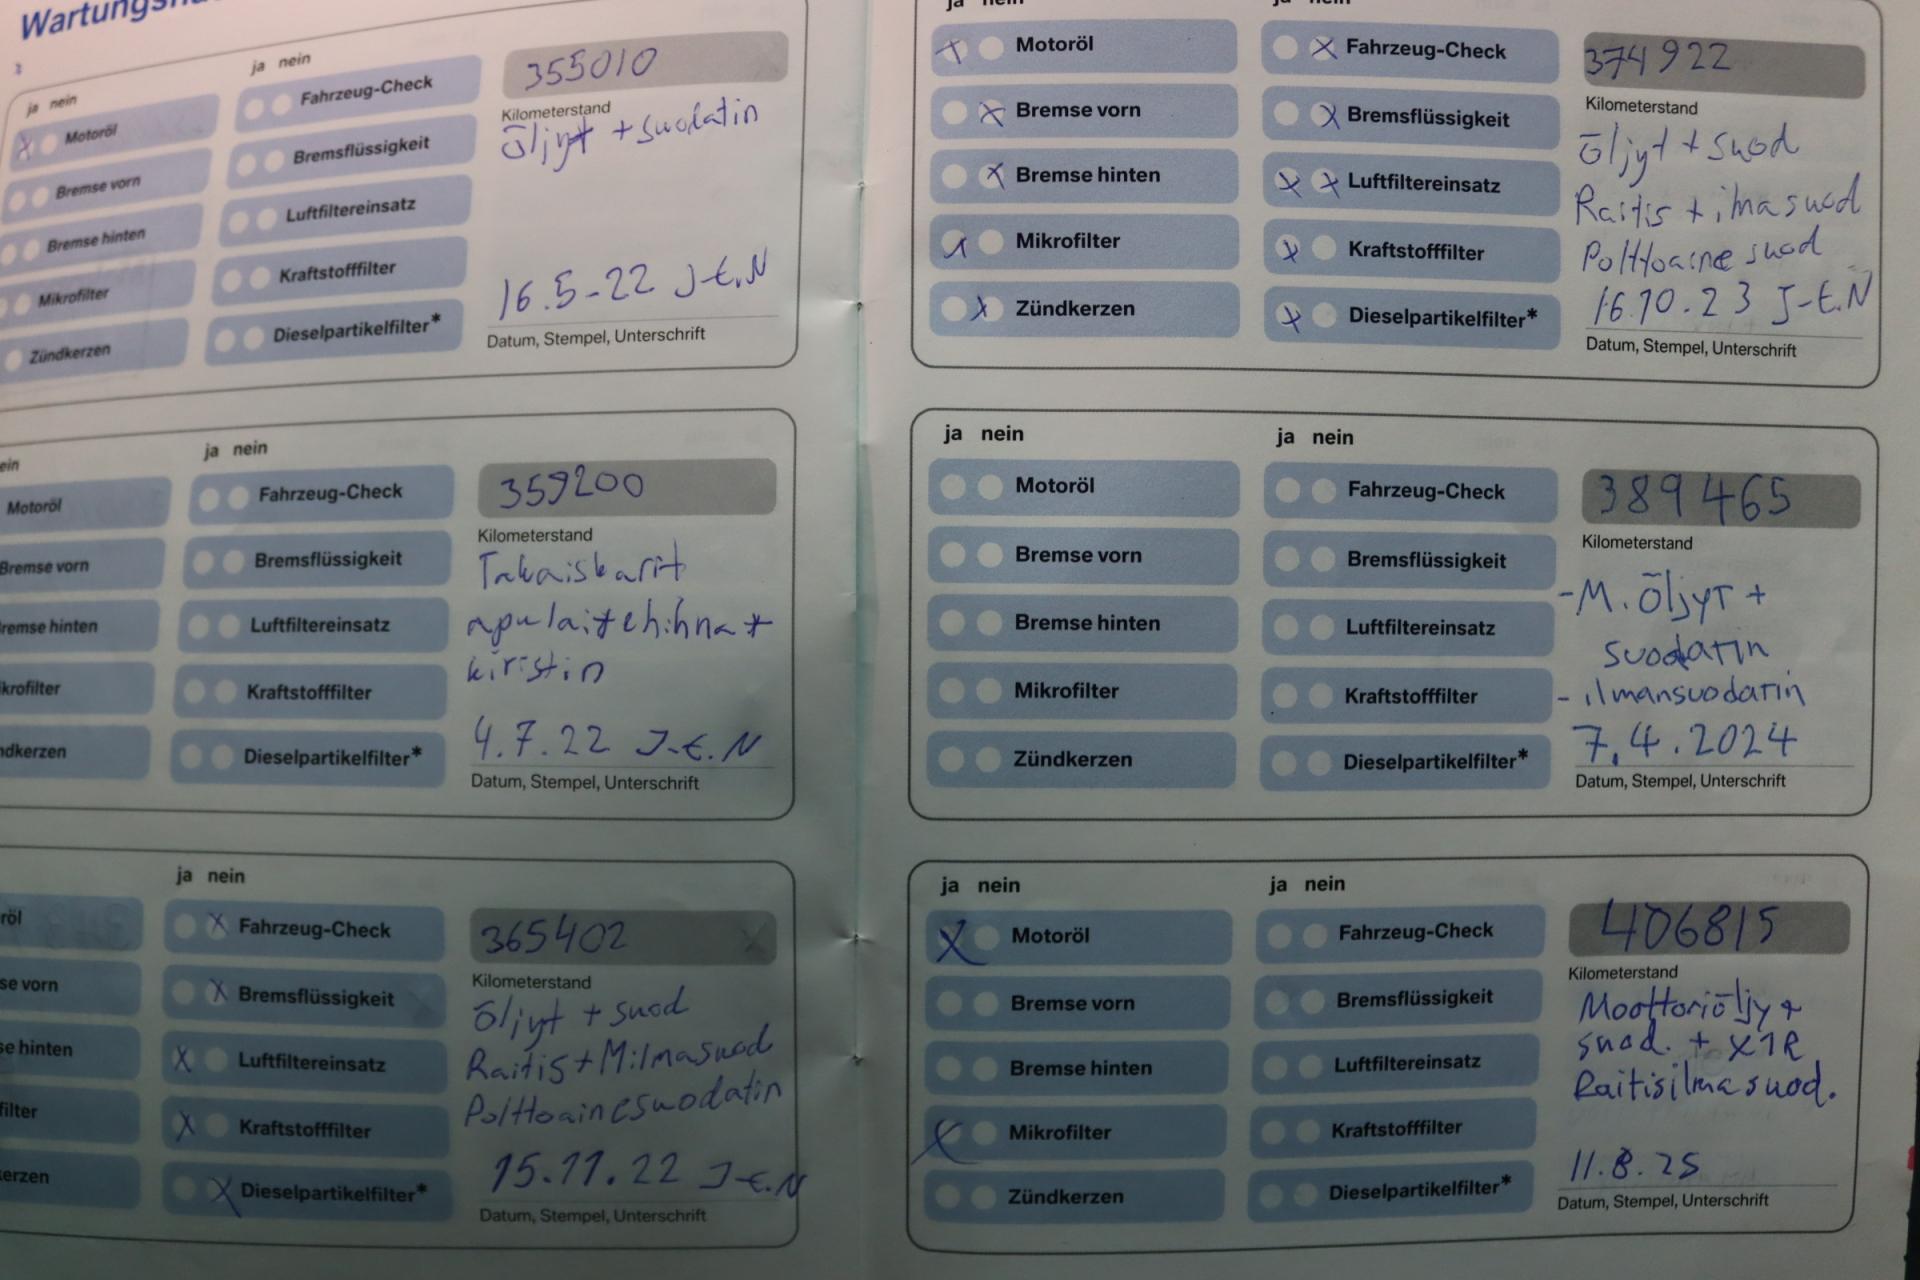 ja nein
Motoröl
Bremse vorn
Bremse hinten
Mikrofilter
Zündkerzen
ja nein
Fahrzeug-Check
Bremsflüssigkeit
Luftfiltereinsatz
Kraftstofffilter
Dieselpartikelfilter*
355010
Kilometerstand
öljyt + suodatin
16.5-22 J-E.N
Datum, Stempel, Unterschrift
ein
Motoröl
Bremse vorn
remse hinten
krofilter
ndkerzen
ja nein
Fahrzeug-Check
Bremsflüssigkeit
Luftfiltereinsatz
Kraftstofffilter
Dieselpartikelfilter*
359200
Kilometerstand
Takaiskarit
apulaitehihnat
kiristin
4.7.22 J-E.N
Datum, Stempel, Unterschrift
röl
se vorn
se hinten
filter
erzen
ja nein
Fahrzeug-Check
Bremsflüssigkeit
Luftfiltereinsatz
Kraftstofffilter
Dieselpartikelfilter*
365402
Kilometerstand
öljyt + suod
Raitis + M:ilmasuod
Polttoainesuodatin
15.11.22 J-E.N
Datum, Stempel, Unterschrift
ja nein
Motoröl
Bremse vorn
Bremse hinten
Mikrofilter
Zündkerzen
ja nein
Fahrzeug-Check
Bremsflüssigkeit
Luftfiltereinsatz
Kraftstofffilter
Dieselpartikelfilter*
374922
Kilometerstand
öljyt + suod
Raitis + ilmasuod
Polttoaine suod
16.10.23 J-E.N
Datum, Stempel, Unterschrift
ja nein
Motoröl
Bremse vorn
Bremse hinten
Mikrofilter
Zündkerzen
ja nein
Fahrzeug-Check
Bremsflüssigkeit
Luftfiltereinsatz
Kraftstofffilter
Dieselpartikelfilter*
389465
Kilometerstand
-M. Öljyt +
suodatin
- ilmansuodatin
7.4.2024
Datum, Stempel, Unterschrift
ja nein
Motoröl
Bremse vorn
Bremse hinten
Mikrofilter
Zündkerzen
ja nein
Fahrzeug-Check
Bremsflüssigkeit
Luftfiltereinsatz
Kraftstofffilter
Dieselpartikelfilter*
406815
Kilometerstand
Moottoriöljy +
suod. + X1R
Raitisilmasuod.
11.8.25
Datum, Stempel, Unterschrift